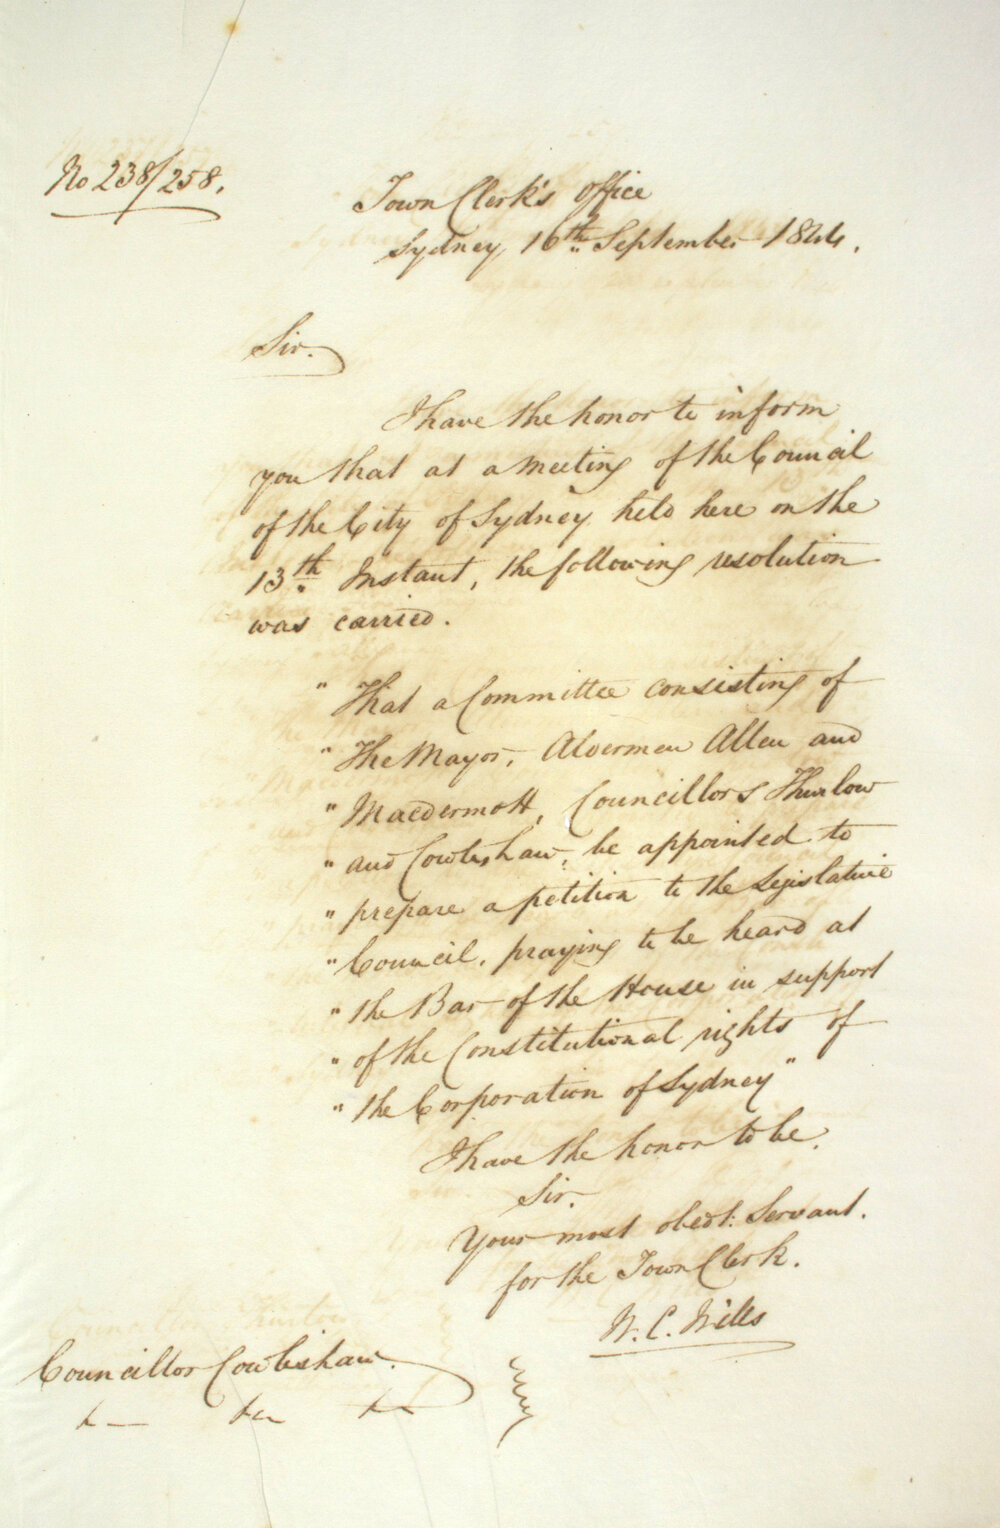 No 238/258.
Town Clerk's Office
Sydney, 16th September 1844.
Sir.
I have the honor to inform
you that at a meeting of the Council
of the City of Sydney held here on the
13th Instant, the following resolution
was carried.
"That a Committee consisting of
"The Mayor, Aldermen Allen and
"Macdermott, Councillors Thurlow
"and Cowlishaw, be appointed to
"prepare a petition to the Legislative
"Council, praying to be heard at
"the Bar of the House in support
"of the Constitutional rights of
"the Corporation of Sydney"
I have the honor to be.
Sir.
Your most obedt. Servant.
for the Town Clerk.
W. C. Wills
Councillor Cowlishaw.